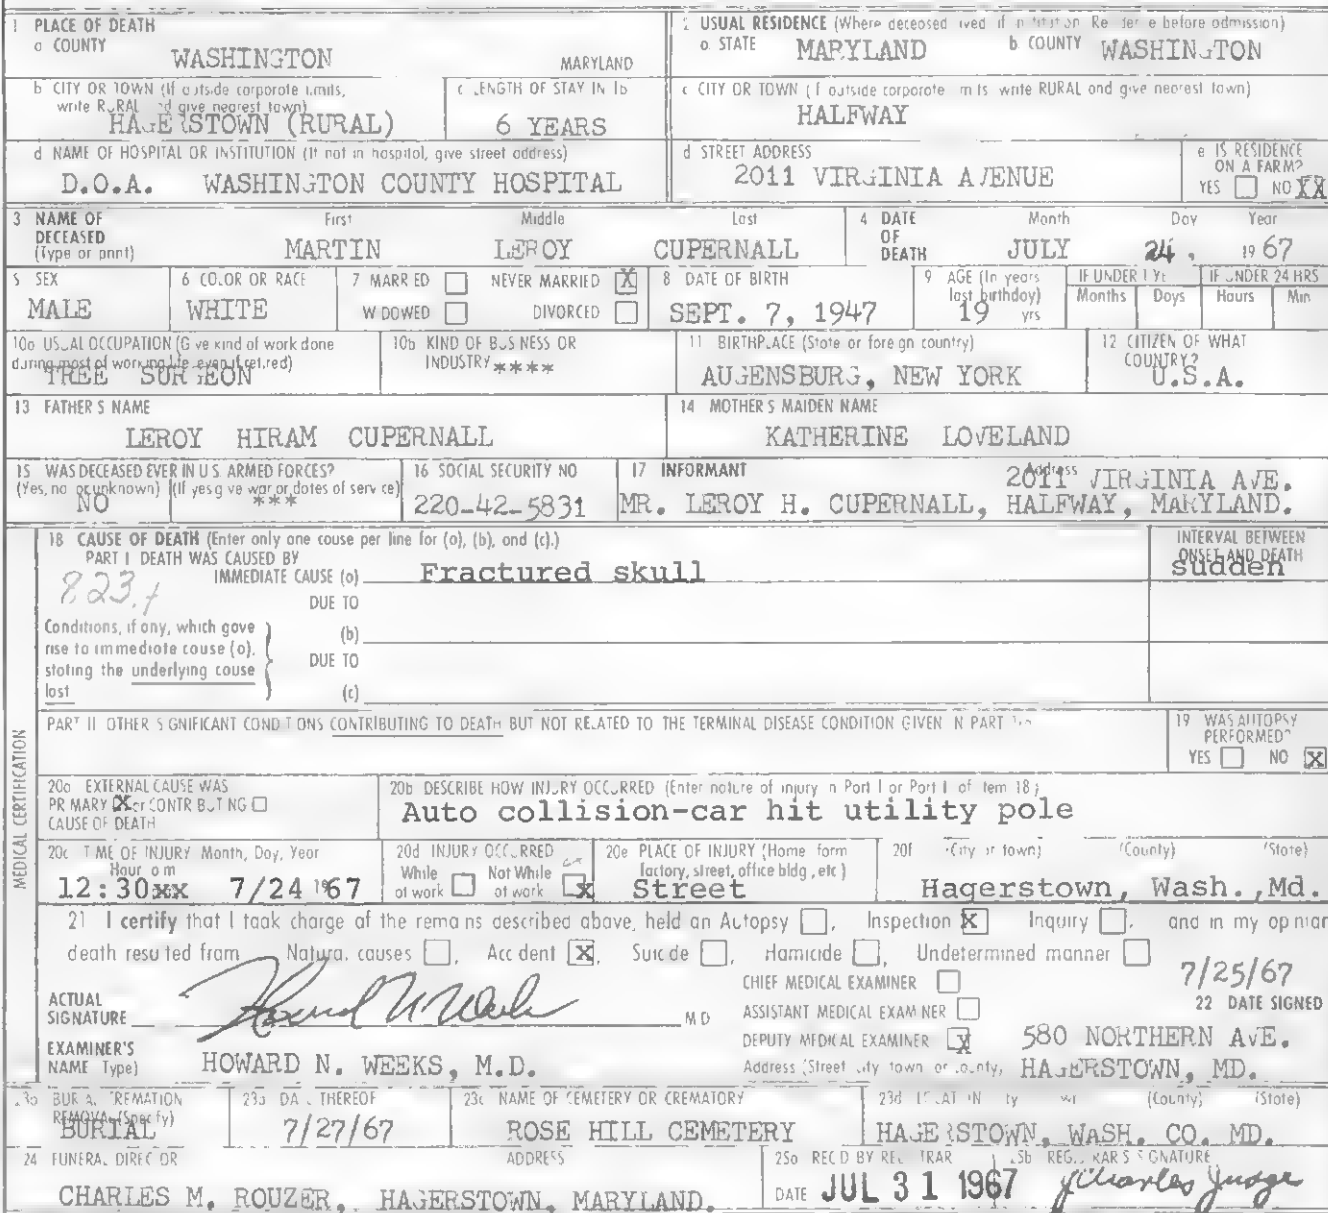 1 PLACE OF DEATH
a COUNTY
WASHINGTON
MARYLAND
2 USUAL RESIDENCE (Where deceased lived if institution Residence before admission)
a. STATE MARYLAND b. COUNTY WASHINGTON
b CITY OR TOWN (If outside corporate limits, write RURAL and give nearest town)
HAGERSTOWN (RURAL)
c LENGTH OF STAY IN 1b
6 YEARS
c CITY OR TOWN (If outside corporate limits write RURAL and give nearest town)
HALFWAY
d NAME OF HOSPITAL OR INSTITUTION (If not in hospital, give street address)
D.O.A. WASHINGTON COUNTY HOSPITAL
d STREET ADDRESS
2011 VIRGINIA AVENUE
e IS RESIDENCE ON A FARM?
YES NO XX
3 NAME OF DECEASED (Type or print)
First Middle Last
MARTIN LEROY CUPERNALL
4 DATE OF DEATH
Month Day Year
JULY 24, 1967
5 SEX
MALE
6 COLOR OR RACE
WHITE
7 MARRIED NEVER MARRIED X
WIDOWED DIVORCED
8 DATE OF BIRTH
SEPT. 7, 1947
9 AGE (In years last birthday)
19 yrs
IF UNDER 1 YR
Months Days
IF UNDER 24 HRS
Hours Min
10a USUAL OCCUPATION (Give kind of work done during most of working life, even if retired)
TREE SURGEON
10b KIND OF BUSINESS OR INDUSTRY
****
11 BIRTHPLACE (State or foreign country)
AUGENSBURG, NEW YORK
12 CITIZEN OF WHAT COUNTRY?
U.S.A.
13 FATHER'S NAME
LEROY HIRAM CUPERNALL
14 MOTHER'S MAIDEN NAME
KATHERINE LOVELAND
15 WAS DECEASED EVER IN U.S. ARMED FORCES?
(Yes, no or unknown) (If yes give war or dates of service)
NO ***
16 SOCIAL SECURITY NO
220-42-5831
17 INFORMANT Address
2011 VIRGINIA AVE.
MR. LEROY H. CUPERNALL, HALFWAY, MARYLAND.
MEDICAL CERTIFICATION
18 CAUSE OF DEATH (Enter only one cause per line for (a), (b), and (c).)
PART I DEATH WAS CAUSED BY
IMMEDIATE CAUSE (a) Fractured skull
INTERVAL BETWEEN ONSET AND DEATH
sudden
DUE TO
Conditions, if any, which gave rise to immediate cause (a), stating the underlying cause last
(b)
DUE TO
(c)
PART II OTHER SIGNIFICANT CONDITIONS CONTRIBUTING TO DEATH BUT NOT RELATED TO THE TERMINAL DISEASE CONDITION GIVEN IN PART
19 WAS AUTOPSY PERFORMED?
YES NO X
20a EXTERNAL CAUSE WAS
PRIMARY X or CONTRIBUTING
CAUSE OF DEATH
20b DESCRIBE HOW INJURY OCCURRED (Enter nature of injury in Part I or Part II of item 18)
Auto collision-car hit utility pole
20c TIME OF INJURY Month, Day, Year
Hour a m
12:30xx 7/24 1967
20d INJURY OCCURRED
While at work Not While at work x
20e PLACE OF INJURY (Home farm factory, street, office bldg, etc)
Street
20f (City or town) (County) (State)
Hagerstown, Wash.,Md.
21 I certify that I took charge of the remains described above, held an Autopsy , Inspection X Inquiry , and in my opinion
death resulted from Natural causes , Accident X, Suicide , Homicide , Undetermined manner
7/25/67
22 DATE SIGNED
ACTUAL SIGNATURE Howard N Weeks M D
CHIEF MEDICAL EXAMINER
ASSISTANT MEDICAL EXAMINER
DEPUTY MEDICAL EXAMINER X
EXAMINER'S NAME Type)
HOWARD N. WEEKS, M.D.
580 NORTHERN AVE.
Address (Street city town or county) HAGERSTOWN, MD.
23a BURIAL CREMATION REMOVAL (Specify)
BURIAL
23b DATE THEREOF
7/27/67
23c NAME OF CEMETERY OR CREMATORY
ROSE HILL CEMETERY
23d LOCATION (County) (State)
HAGERSTOWN, WASH. CO. MD.
24 FUNERAL DIRECTOR ADDRESS
CHARLES M. ROUZER, HAGERSTOWN, MARYLAND.
25a REC'D BY REGISTRAR
DATE JUL 31 1967
25b REGISTRAR'S SIGNATURE
Charles Judge